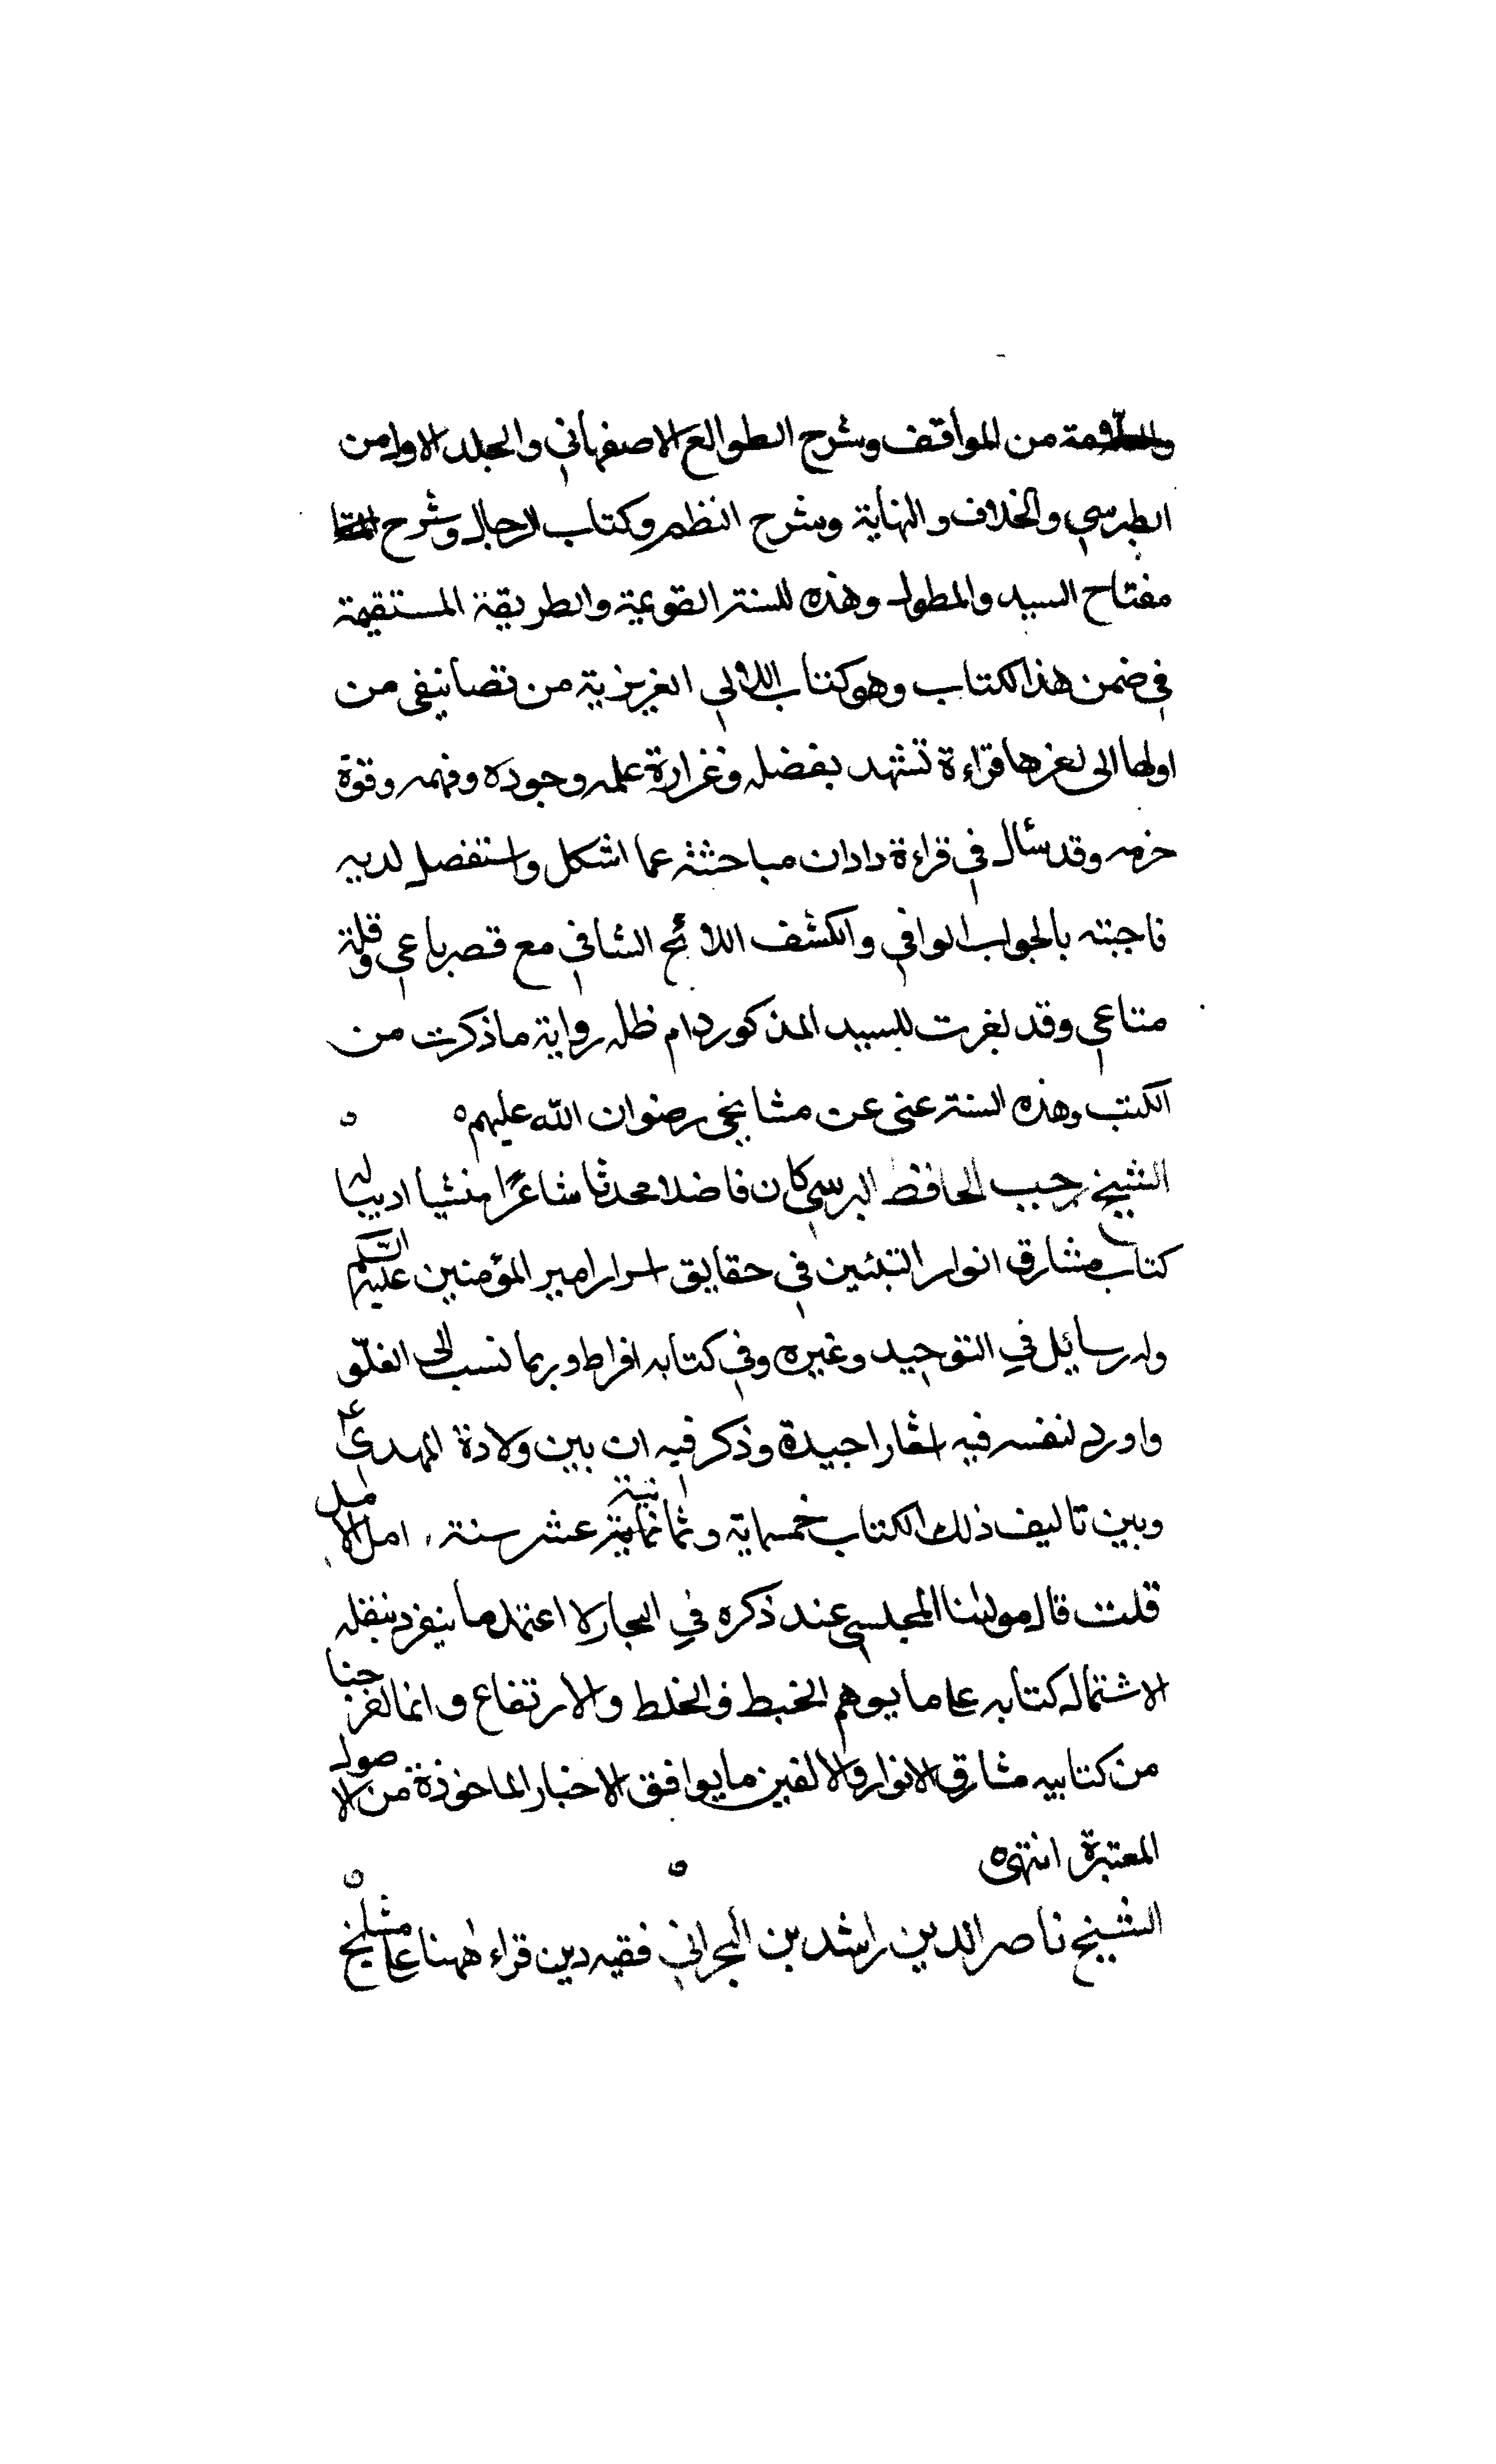 من المواقف وشرح الطوالع الاصفهاني والمجلد الاول من
الطبرسي والخلاف والنهاية وشرح النظم وكتاب الرجال وشرح
مفتاح السيد والمطول وهذه السنة القويمة والطريقة المستقيمة
في ضمن هذا الكتاب وهو كتاب اللالي العزيزية من تصانيفي من
اولها الى اخرها قراءة تشهد بفضله وغزارة علمه وجوده وفهمه وقوة
حزمه وقد سأل في قراءة مباحثته عما اشكل واستفصل لديه
فاجبته بالجواب الوافي والكشف اللائح الشافي مع قصر باعي وقلة
متاعي وقد للسيد المذكور دام ظله رواية ما ذكرت من
الكتب وهذه السنة عني عن مشايخي رضوان الله عليهم ه ه
الشيخ رجب الحافظ البرسي كان فاضلا محدثا شاعرًا منشيا اديبا له
كتاب مشارق انوار في حقايق اسرار امير المؤمنين عليهم السّلم
وله رسايل في التوحيد وغيره وفي كتابه افراط وربما نسب الى الغلّو
واورد لنفسه فيه اشعارا جيدة وذكر فيه ان بين ولادة المهدي ع
وبين تاليف ذلك الكتاب خمسماية وثمانية عشر سنة امل الامل
قلت قال مولنا المجلسي عند ذكره في البحار لا اعتمد ما ينفرد بنقله
لاشتمال كتابه على ما يوهم الخبط والخلط والارتفاع وانما اخرجنا
من كتابيه مشارق الانوار والالفين ما يوافق الاخبار الماخوذة من الاصول
المعتبرة انتهى ه ه
الشيخ ناصر الدين راشد بن البحراني فقيه دين قراء ههنا على مشايخ